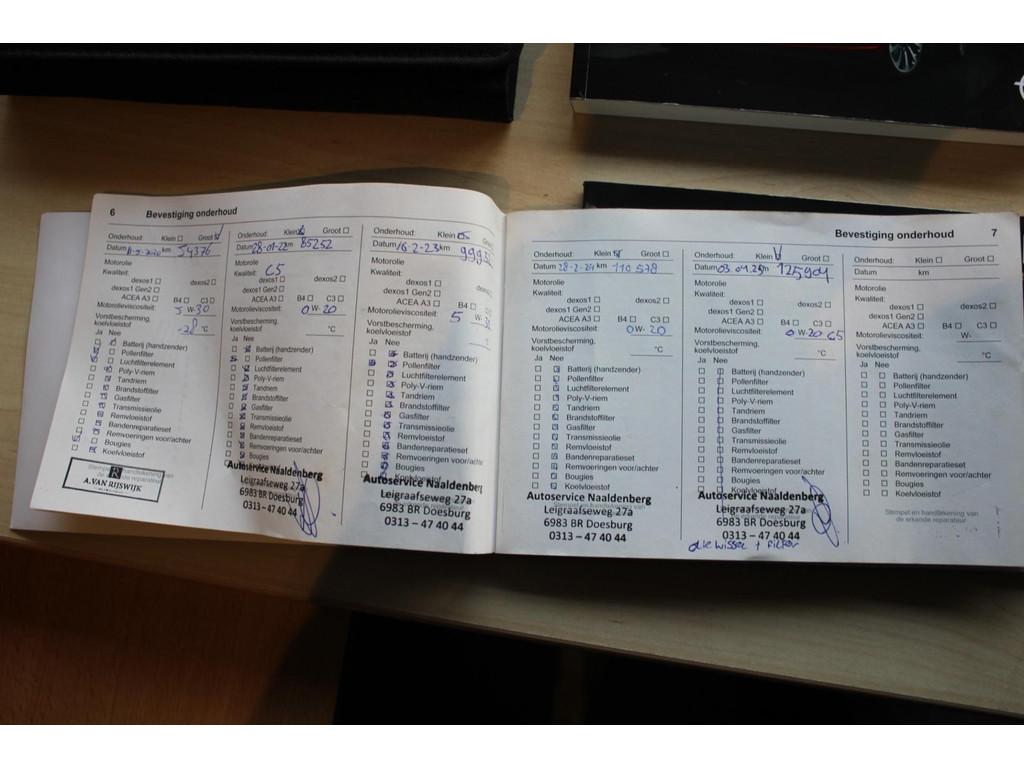 6 Bevestiging onderhoud
Onderhoud: Klein Groot
Datum km 54376
Motorolie
Kwaliteit:
dexos1
dexos1 Gen2
ACEA A3 B4 C3
Motorolieviscositeit: 5 W-30
Vorstbescherming, koelvloeistof
-28 °C
Ja Nee
Batterij (handzender)
Pollenfilter
Luchtfilterelement
Poly-V-riem
Tandriem
Brandstoffilter
Gasfilter
Transmissieolie
Remvloeistof
Bandenreparatieset
Remvoeringen voor/achter
Bougies
Koelvloeistof
A.VAN RIJSWIJK
Onderhoud: Klein Groot
Datum 28-01-22 km 85252
Motorolie
Kwaliteit: C5
dexos1 dexos2
dexos1 Gen2
ACEA A3 B4 C3
Motorolieviscositeit: 0 W-20
Vorstbescherming, koelvloeistof
°C
Ja Nee
Batterij (handzender)
Pollenfilter
Luchtfilterelement
Poly-V-riem
Tandriem
Brandstoffilter
Gasfilter
Transmissieolie
Remvloeistof
Bandenreparatieset
Remvoeringen voor/achter
Bougies
Autoservice Naaldenberg
Leigraafseweg 27a
6983 BR Doesburg
0313 – 47 40 44
Onderhoud: Klein Groot
Datum 16-2-23 km
Motorolie
Kwaliteit:
dexos1
dexos1 Gen2
ACEA A3 B4
Motorolieviscositeit: 5 W-
Vorstbescherming, koelvloeistof
Ja Nee
Batterij (handzender)
Pollenfilter
Luchtfilterelement
Poly-V-riem
Tandriem
Brandstoffilter
Gasfilter
Transmissieolie
Remvloeistof
Bandenreparatieset
Remvoeringen voor/achter
Bougies
Koelvloeistof
Autoservice Naaldenberg
Leigraafseweg 27a
6983 BR Doesburg
0313 – 47 40 44
Bevestiging onderhoud 7
Onderhoud: Klein Groot
Datum 28-2-24 km 110 578
Motorolie
Kwaliteit:
dexos1 dexos2
dexos1 Gen2
ACEA A3 B4 C3
Motorolieviscositeit: 0W-20
Vorstbescherming, koelvloeistof
°C
Ja Nee
Batterij (handzender)
Pollenfilter
Luchtfilterelement
Poly-V-riem
Tandriem
Brandstoffilter
Gasfilter
Transmissieolie
Remvloeistof
Bandenreparatieset
Remvoeringen voor/achter
Bougies
Koelvloeistof
Autoservice Naaldenberg
Leigraafseweg 27a
6983 BR Doesburg
0313 – 47 40 44
Onderhoud: Klein Groot
Datum 03 04.25 km 125904
Motorolie
Kwaliteit:
dexos1 dexos2
dexos1 Gen2
ACEA A3 B4 C3
Motorolieviscositeit: 0 W-20 C5
Vorstbescherming, koelvloeistof
°C
Ja Nee
Batterij (handzender)
Pollenfilter
Luchtfilterelement
Poly-V-riem
Tandriem
Brandstoffilter
Gasfilter
Transmissieolie
Remvloeistof
Bandenreparatieset
Remvoeringen voor/achter
Bougies
Koelvloeistof
Autoservice Naaldenberg
Leigraafseweg 27a
6983 BR Doesburg
0313 – 47 40 44
olie wissel + filter
Onderhoud: Klein Groot
Datum km
Motorolie
Kwaliteit:
dexos1 dexos2
dexos1 Gen2
ACEA A3 B4 C3
Motorolieviscositeit: W-
Vorstbescherming, koelvloeistof
°C
Ja Nee
Batterij (handzender)
Pollenfilter
Luchtfilterelement
Poly-V-riem
Tandriem
Brandstoffilter
Gasfilter
Transmissieolie
Remvloeistof
Bandenreparatieset
Remvoeringen voor/achter
Bougies
Koelvloeistof
Stempel en handtekening van
de erkende reparateur